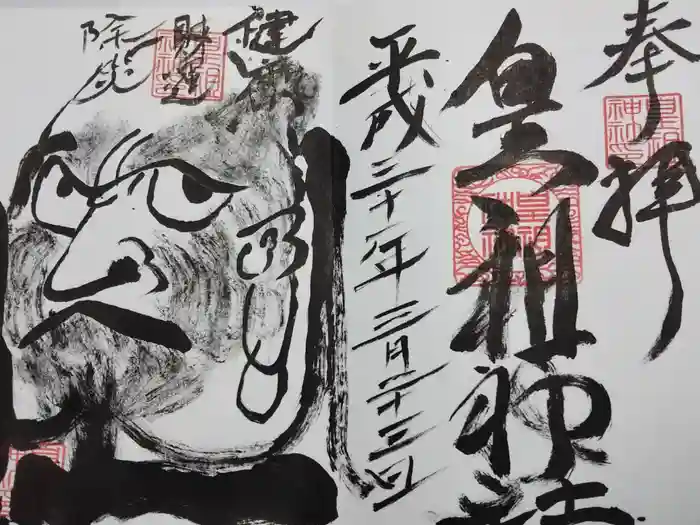 奉拝
皇祖神社
平成三十一年三月二十三日
健康
財運
除災
皇祖
神社